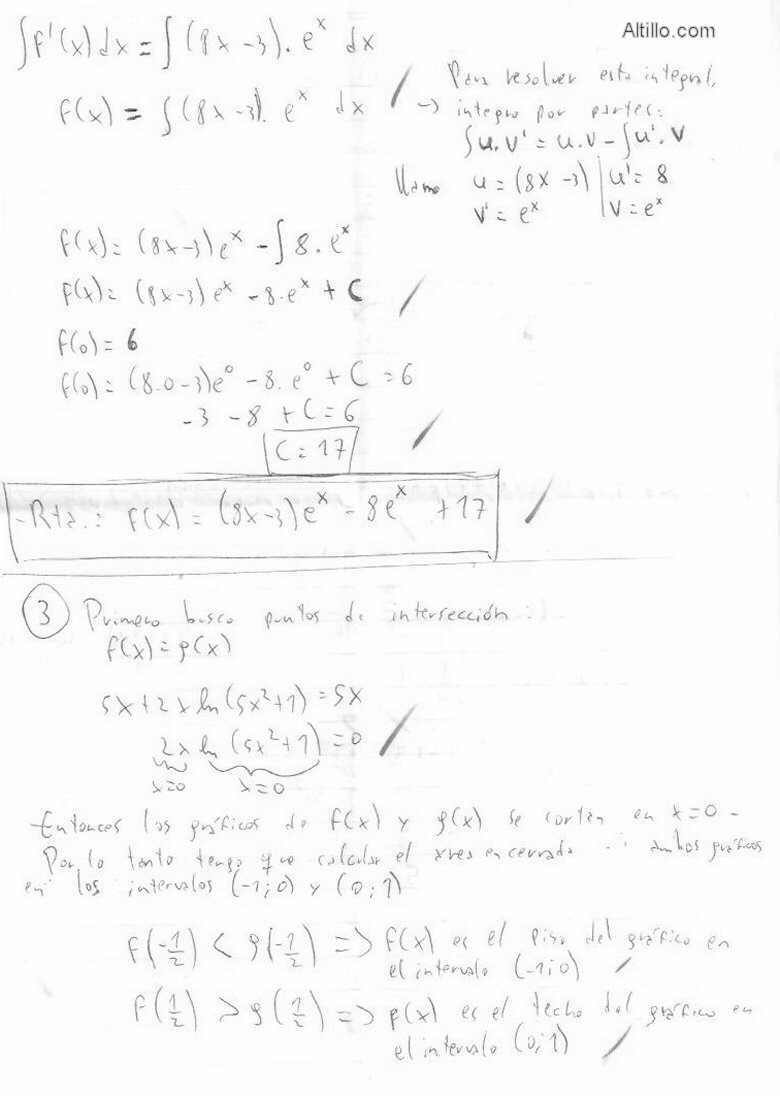 Altillo.com
∫f'(x)dx = ∫(8x-3).e^x dx
f(x) = ∫(8x-3).e^x dx
Para resolver esta integral,
→ integro por partes:
∫u.v' = u.v - ∫u'.v
llamo u = (8x-3) | u' = 8
v' = e^x | v = e^x
f(x) = (8x-3)e^x - ∫8.e^x
f(x) = (8x-3)e^x - 8.e^x + C
f(0) = 6
f(0) = (8.0-3)e^0 - 8.e^0 + C = 6
-3 - 8 + C = 6
C = 17
-Rta.: f(x) = (8x-3)e^x - 8e^x + 17
3 Primero busco puntos de intersección:
f(x) = g(x)
5x+2x ln(5x²+1) = 5x
2x ln (5x²+1) = 0
x=0 x=0
Entonces los gráficos de f(x) y g(x) se cortan en x=0 -
Por lo tanto tengo que calcular el área encerrada ambos gráficos
en los intervalos (-1;0) y (0;1)
f(-1/2) < g(-1/2) => f(x) es el piso del gráfico en
el intervalo (-1;0)
f(1/2) > g(1/2) => f(x) es el techo del gráfico en
el intervalo (0;1)